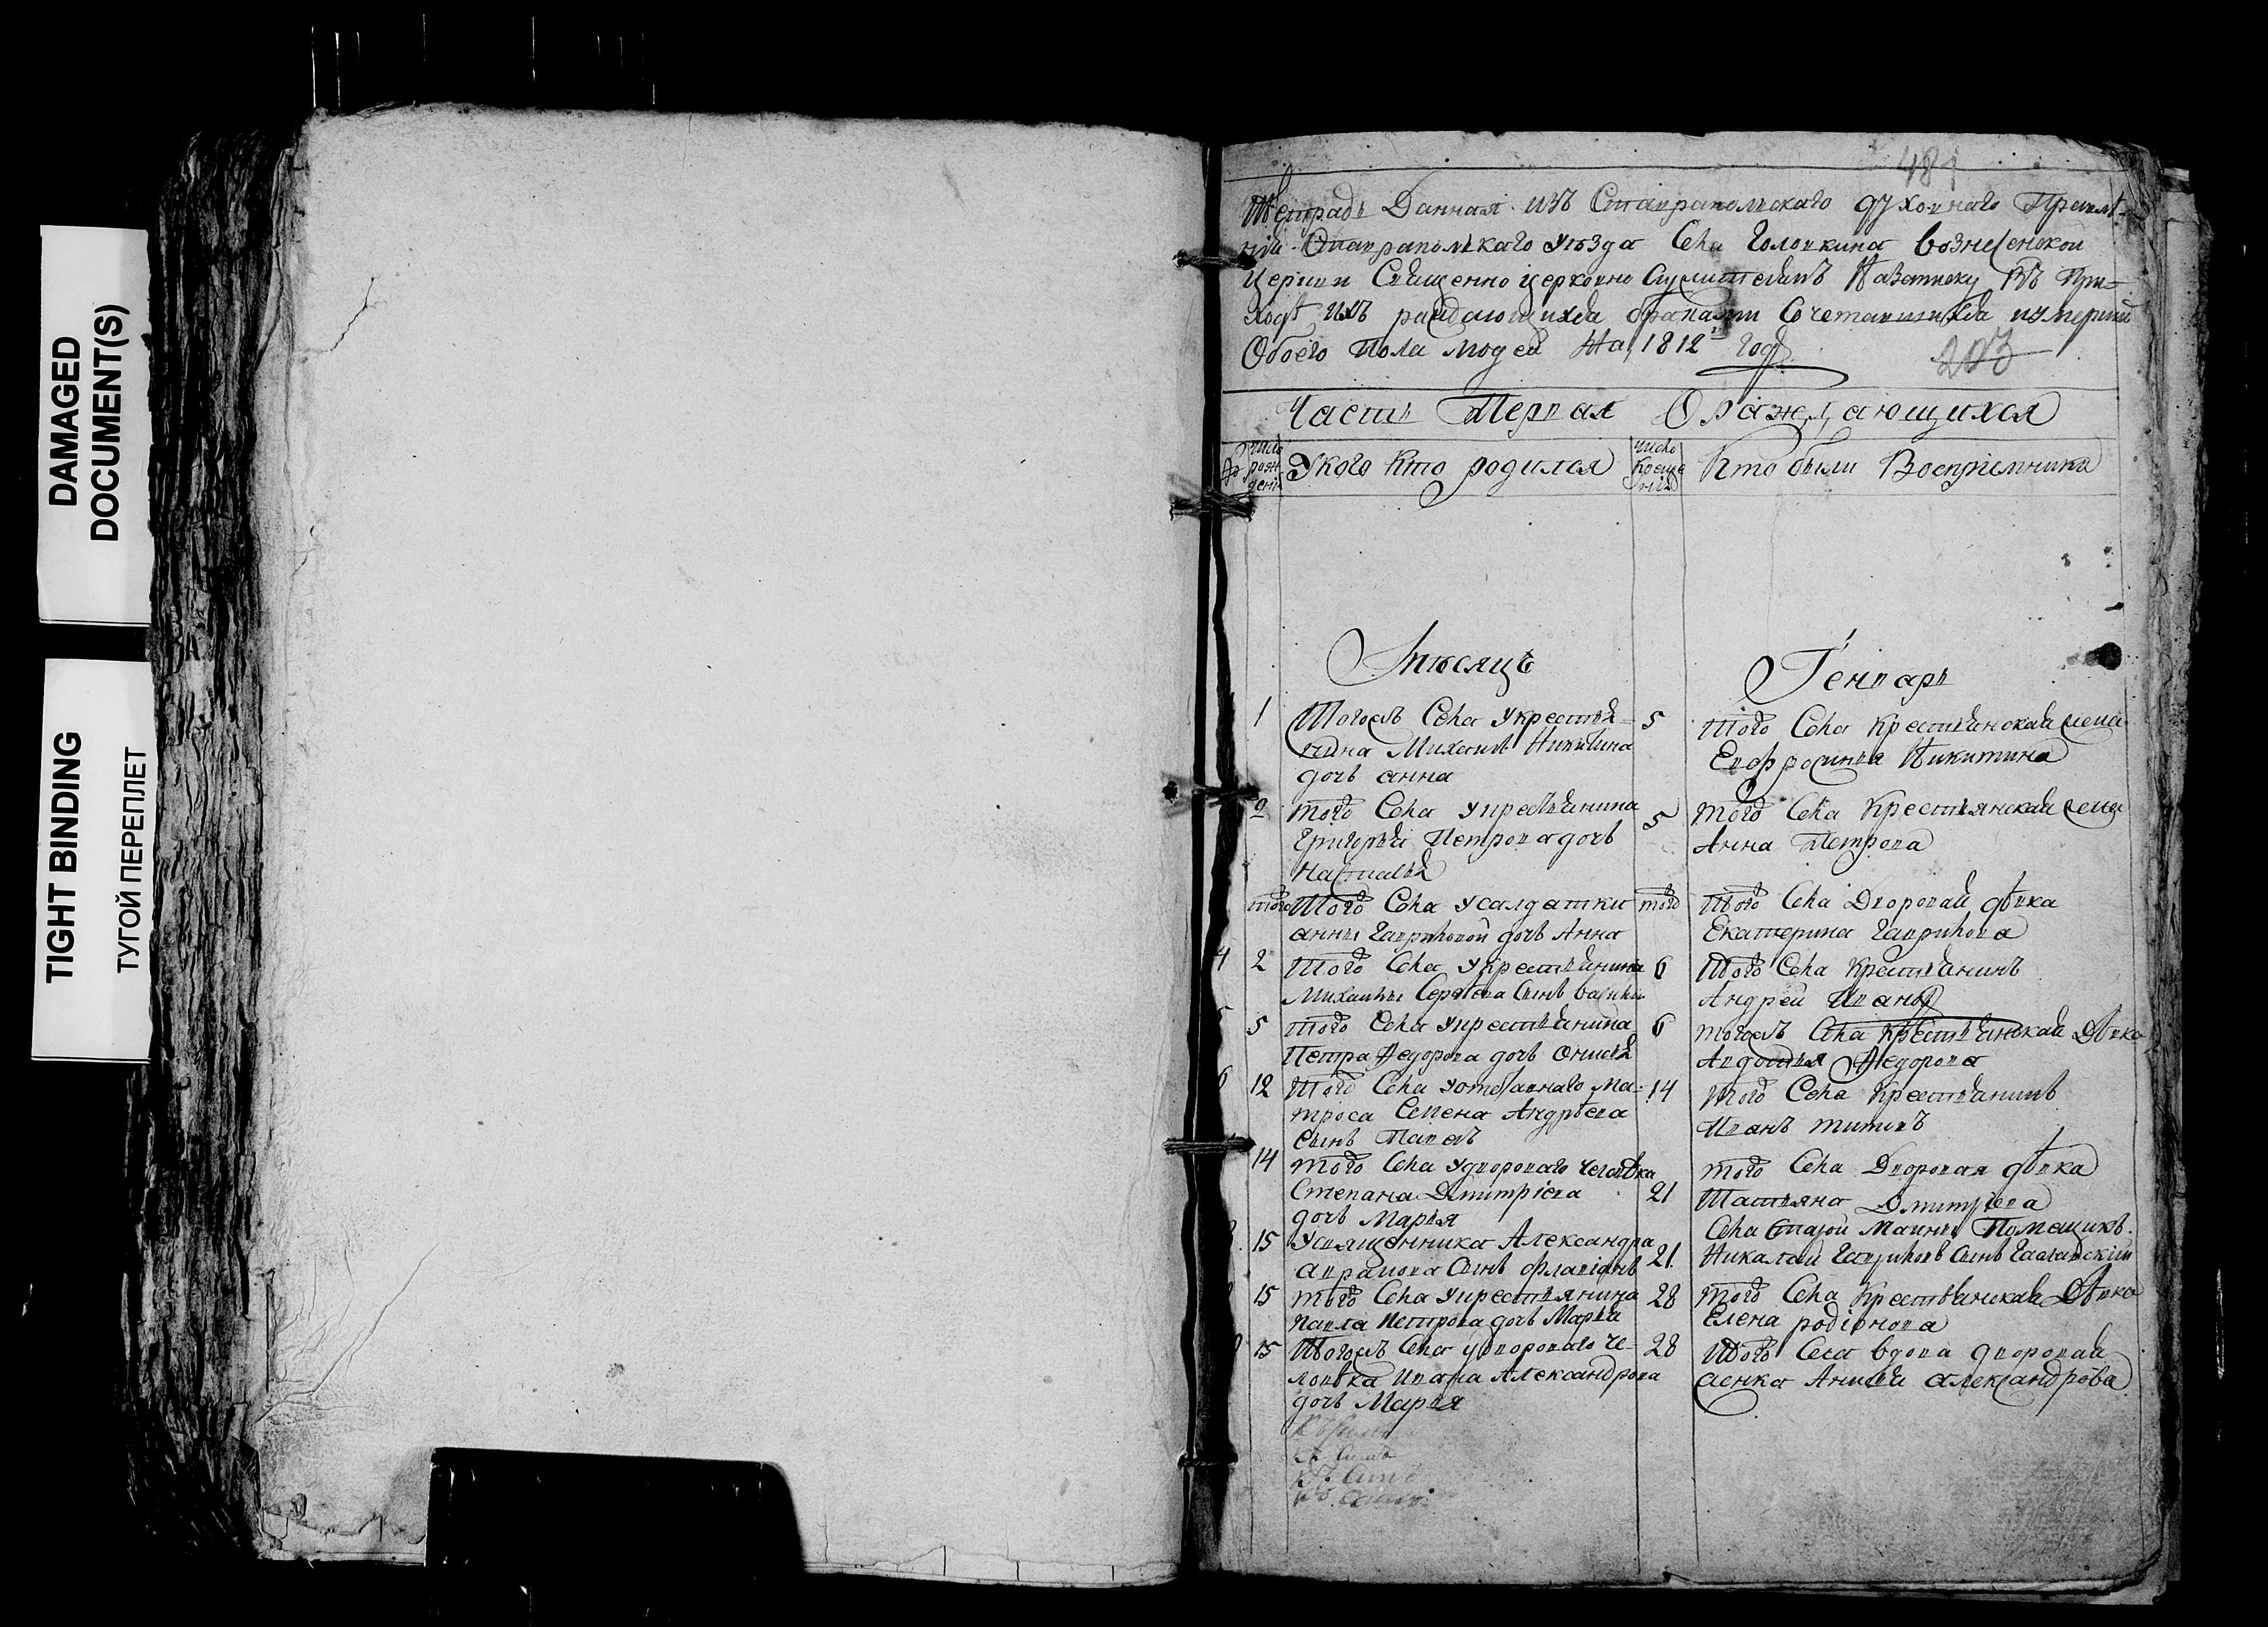 DAMAGED
DOCUMENT(S)
TIGHT BINDING
ТУГОЙ ПЕРЕПЛЕТ
481
Тетрадь Данная изъ Ставрапольскаго духовнаго Правле-
нія Ставрапольскаго уѣзда Села Головкина Вознесенской
Церкви Священно церковно Служителямъ Назаписку въ При-
ходѣ ихъ раждающихся браками Сочетавшихся иумерших
Обоего Пола людей На 1812 годъ
203
Часть Первая О раждающихся
Число рожденія
Укого Кто родился
Число Крещенія
Кто были Воспріемники
Мѣсяцъ
Генварь
1 Тогожъ Села Укрестья-
нина Михаила Никитина
дочь анна
5 Того Села Крестьянская жена
Евфросинья Никитина
2 того Села Укрестьянина
Григорья Петрова дочь
Наталья
5 того Села Крестьянская жена
Анна Петрова
того Того Села Усалдатки
анны Гавриловой дочь Анна
того Того Села Дворовая дѣвка
Екатерина Гаврилова
4 2 Того Села Укрестьянина
Михаилы Сергѣева Сынъ Василий
6 Того Села Крестьянинъ
Андрей Ивановъ
5 5 того Села Укрестьянина
Петра Федорова дочь Онисья
6 тогожъ Села Крестьянская Дѣвка
Авдотья Федорова
6 12 Того Села Уотставнаго Ма-
троса Семена Андрѣева
Сынъ Павелъ
14 того Села Крестьянинъ
Иванъ Титовъ
14 того Села Удвороваго человѣка
Степана Дмитріева
дочь Марья
21 того Села Дворовая дѣвка
Татьяна Дмитріева
15 Усвященника Александра
аврамова Сынъ флавіанъ
21. Села Старой Маины Помещикъ
Никалай Гавриловъ Сынъ
15 того Села Укрестьянина
Павла Петрова дочь Марья
28 того Села Крестьянская Дѣвка
Елена родіонова
15 Тогожъ Села удвороваго че-
ловѣка Ивана Александрова
дочь Марья
28 Того Села вдова дворовая
женка Анисья александрова